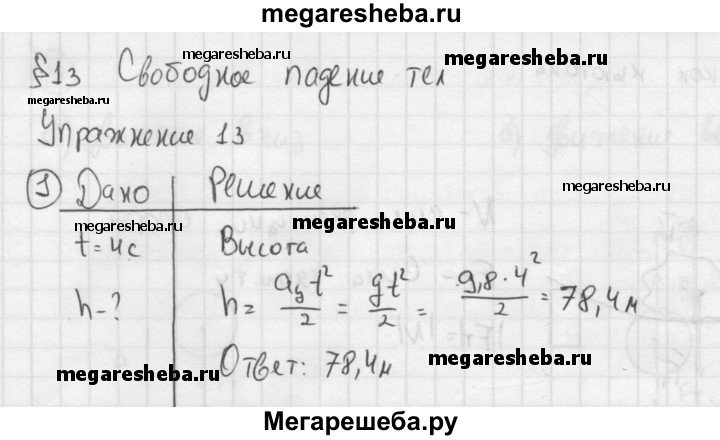 megaresheba.ru
§13 Свободное падение тел
megaresheba.ru
megaresheba.ru
Упражнение 13
megaresheba.ru
1 Дано Решение
megaresheba.ru
megaresheba.ru
t=4c Высота
h-? h= a_y t²/2 = gt²/2 = 9,8·4²/2 = 78,4м
Ответ: 78,4м
megaresheba.ru
megaresheba.ru
Мегарешеба.ру